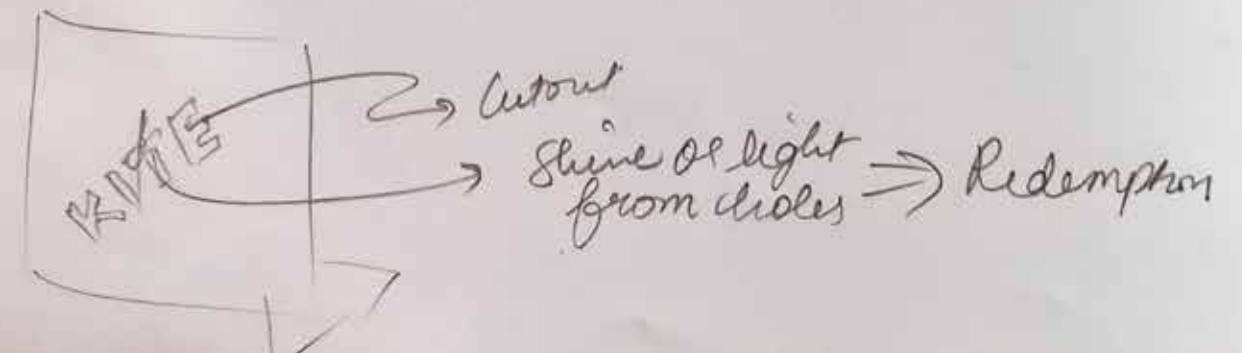 KITE
Cutout
Shine of light
from holes
Redemption